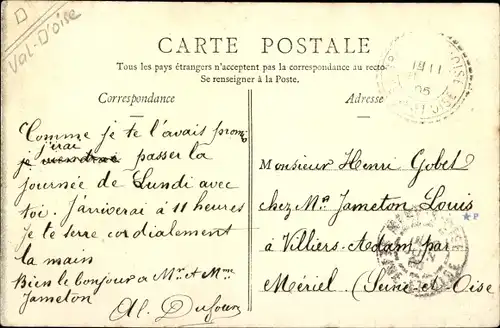 D
Val-D'oise
CARTE POSTALE
Tous les pays étrangers n'acceptent pas la correspondance au recto
Se renseigner à la Poste.
Correspondance
Adresse
Comme je te l'avais promis
j'irai
je viendrai passer la
journée de Lundi avec
toi. J'arriverai à 11 heures
je te serre cordialement
la main
Bien le bonjour a Mr et Mme
Jameton
Al. Dufour
Monsieur Henri Gobet
chez Mr Jameton Louis
à Villiers-Adam par
Mériel (Seine-et-Oise
★P